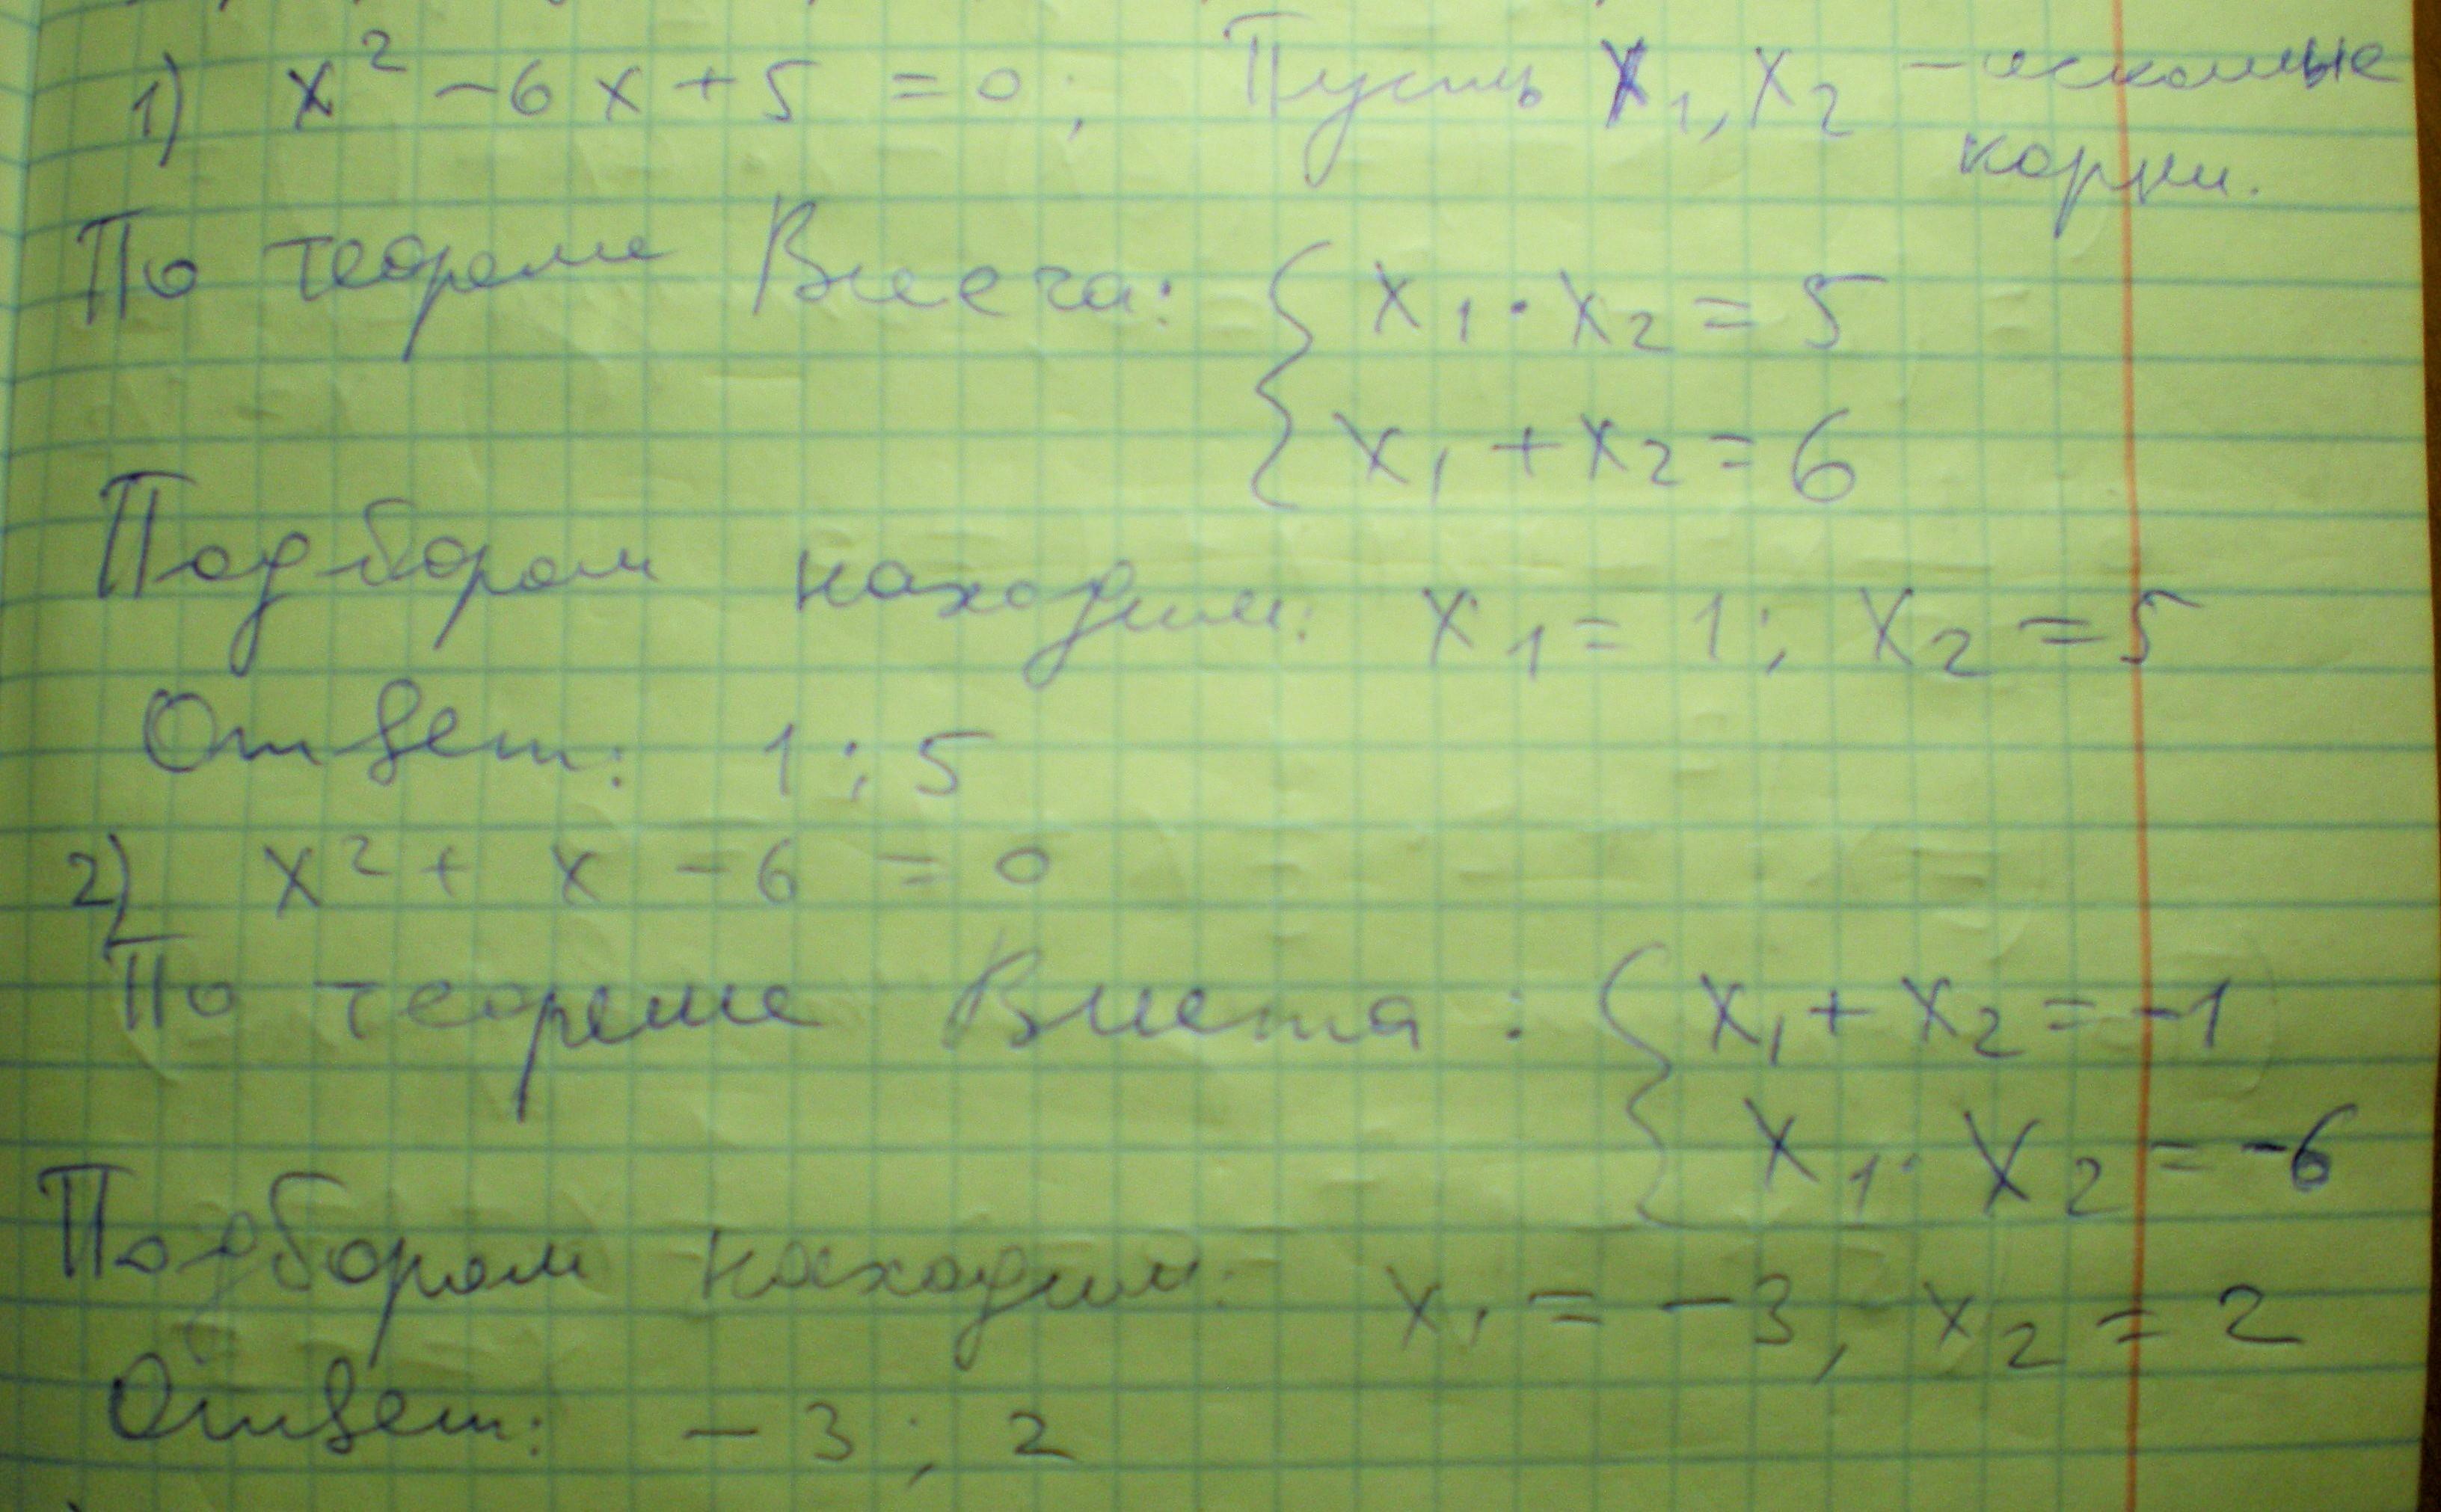 1) x² - 6x + 5 = 0; Пусть x₁, x₂ - искомые
корни.
По теореме Виета: { x₁ · x₂ = 5
x₁ + x₂ = 6
Подбором находим: x₁ = 1; x₂ = 5
Ответ: 1; 5
2) x² + x - 6 = 0
По теореме Виета: { x₁ + x₂ = -1
x₁ · x₂ = -6
Подбором находим: x₁ = -3, x₂ = 2
Ответ: -3; 2